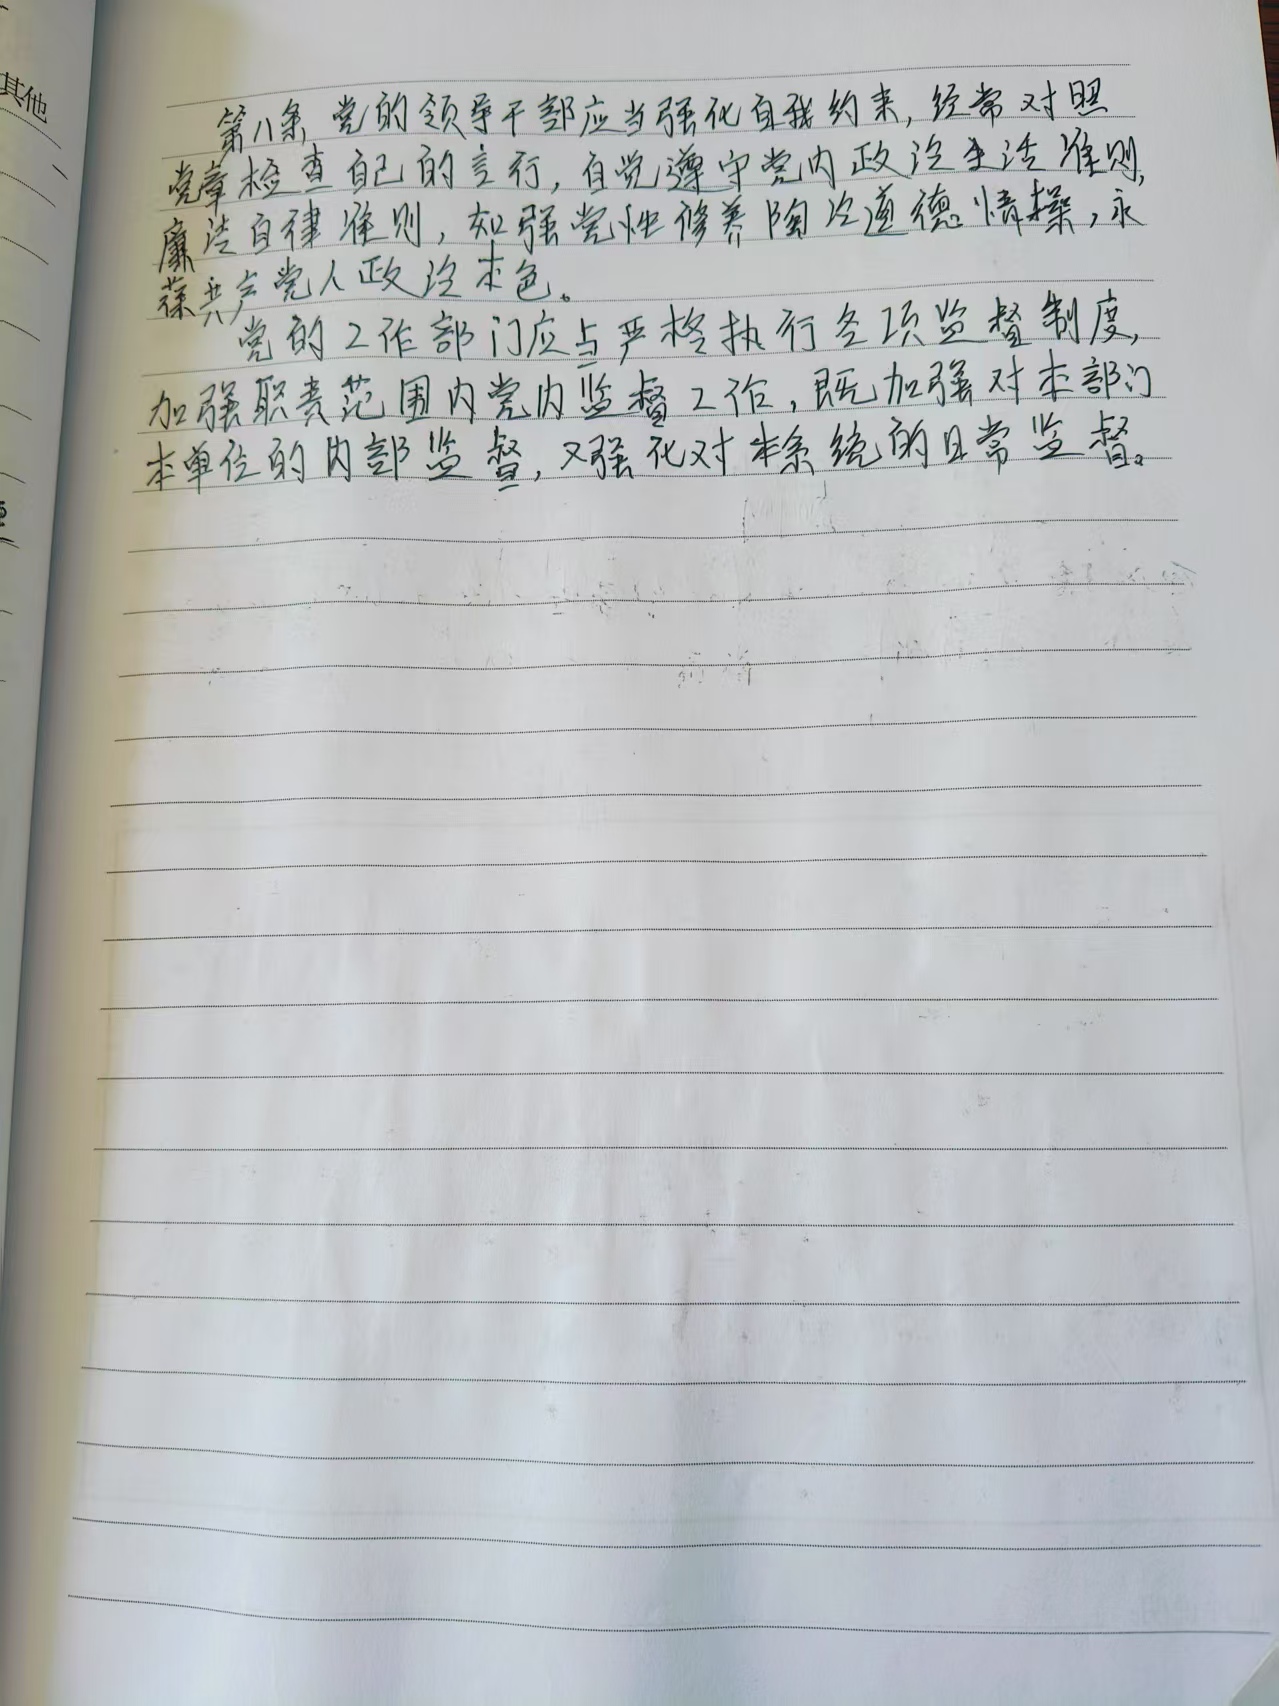 其他
第八条,党的领导干部应当强化自我约束,经常对照
党章检查自己的言行,自觉遵守党内政治生活准则,
廉洁自律准则,加强党性修养陶冶道德情操,永
葆共产党人政治本色。
党的工作部门应当严格执行各项监督制度,
加强职责范围内党内监督工作,既加强对本部门
本单位的内部监督,又强化对本系统的日常监督。